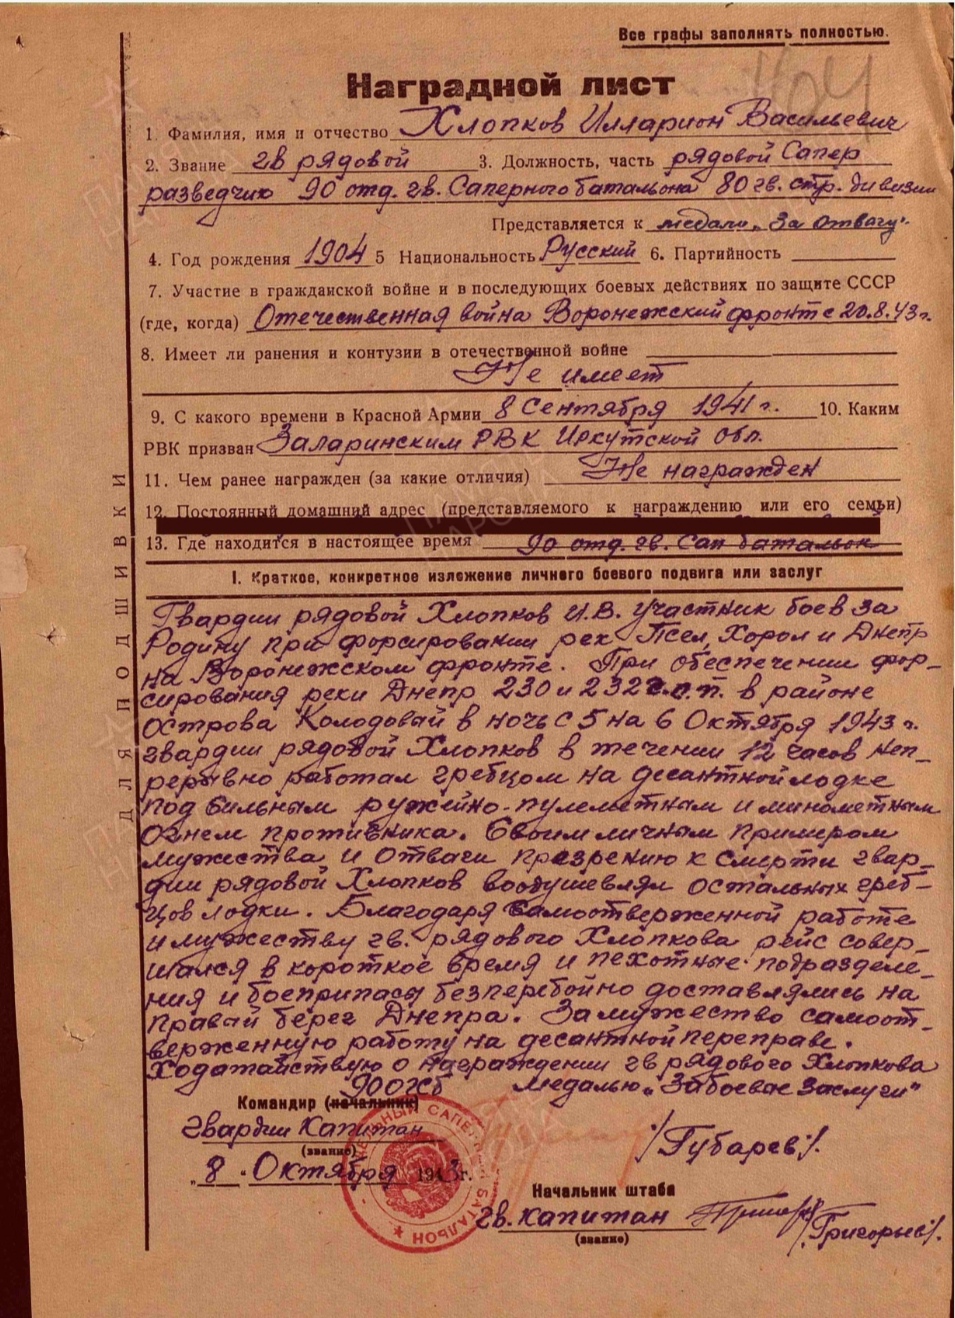 Все графы заполнять полностью.
404
Наградной лист
1. Фамилия, имя и отчество Хлопков Илларион Васильевич
2. Звание гв рядовой 3. Должность, часть рядовой Сапер
разведчик 90 отд. гв. Саперного батальона 80 гв. стр. дивизии
Представляется к медали „За отвагу“
4. Год рождения 1904 5 Национальность Русский 6. Партийность
7. Участие в гражданской войне и в последующих боевых действиях по защите СССР
(где, когда) Отечественная война Воронежский фронт с 20.8.43г.
8. Имеет ли ранения и контузии в отечественной войне
Не имеет
9. С какого времени в Красной Армии 8 Сентября 1941 г. 10. Каким
РВК призван Заларинским РВК Иркутской обл.
11. Чем ранее награжден (за какие отличия) Не награжден
12. Постоянный домашний адрес (представляемого к награждению или его семьи)
13. Где находится в настоящее время 90 отд. гв. Сап батальон
I. Краткое, конкретное изложение личного боевого подвига или заслуг
Гвардии рядовой Хлопков И.В. участник боев за
Родину при форсировании рек Псел, Хорол и Днепр
на Воронежском фронте. При обеспечении фор-
сирования реки Днепр 230 и 232 с.п. в районе
Острова Колодовый в ночь с 5 на 6 Октября 1943 г.
гвардии рядовой Хлопков в течении 12 часов неп-
рерывно работал гребцом на десантной лодке
под сильным ружейно-пулеметным и минометным
Огнем противника. Своим личным примером
мужества и отваги презрению к смерти гвар-
дии рядовой Хлопков воодушевлял остальных греб-
цов лодки. Благодаря самоотверженной работе
и мужеству гв. рядового Хлопкова рейс совер-
шался в короткое время и пехотные подразделе-
ния и боеприпасы безперебойно доставлялись на
правый берег Днепра. За мужество самоот-
верженную работу на десантной переправе.
Ходатайствую о награждении гв рядового Хлопкова
медалью „За боевые заслуги“
90 ОГСБ
Командир (начальник)
гвардии Капитан
(звание)
/Губарев/.
„8“ Октября 1943 г.
ОТДЕЛЬНЫЙ САПЕРНЫЙ БАТАЛЬОН
Начальник штаба
гв. капитан
/Григорьев/.
(звание)
ДЛЯ ПОДШИВКИ
ПАМЯТЬ НАРОДА